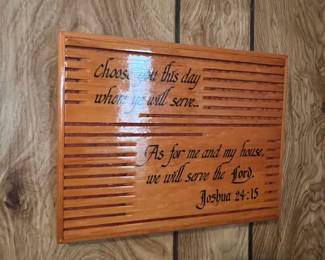 Choose you this day
whom ye will serve...
As for me and my house,
we will serve the Lord.
Joshua 24:15